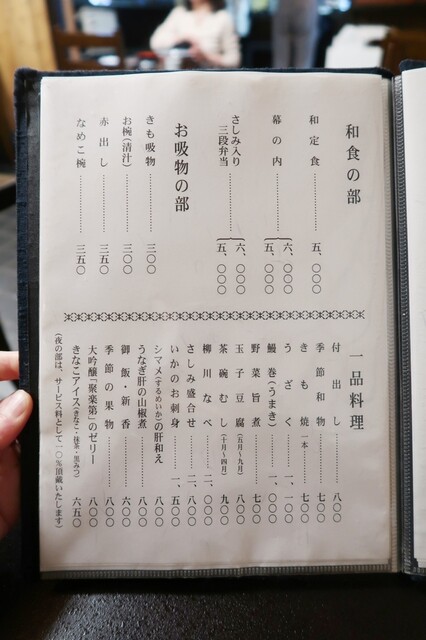 和食の部
和定食………五、〇〇〇
幕の内………六、〇〇〇
五、〇〇〇
さしみ入り
三段弁当………六、〇〇〇
五、〇〇〇
お吸物の部
きも吸物………三〇〇
お椀(清汁)………三〇〇
赤出し………三五〇
なめこ椀………三五〇
一品料理
付出し………八〇〇
季節和物………七〇〇
きも焼一本………七〇〇
うざく………一、一〇〇
鰻巻(うまき)………一、〇〇〇
野菜旨煮………七〇〇
玉子豆腐(五月~九月)………八〇〇
茶碗むし(十月~四月)………九〇〇
柳川なべ………二、〇〇〇
さしみ盛合せ………二、八〇〇
いかのお刺身………一、五〇〇
シマメ(するめいか)の肝和え………八〇〇
うなぎ肝の山椒煮………八〇〇
御飯・新香………六〇〇
季節の果物………八〇〇
大吟醸「聚楽第」のゼリー………八〇〇
きなこアイス(きなこ・抹茶・黒みつ)………六五〇
(夜の部は、サービス料として一〇%頂戴いたします)